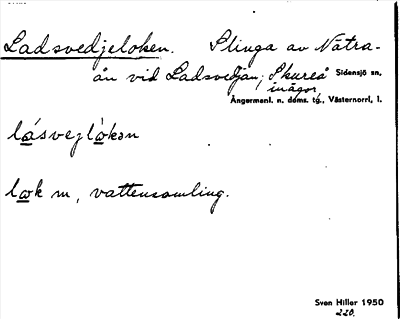 Ladsvedjeloken. Slinga av Nätra-
ån vid Ladsvedjan; Skureå Sidensjö sn,
inägor.
Ångermanl. n. doms. tg., Västernorrl. l.
lásvejlὰkən
læk m, vattensamling.
Sven Hiller 1950
220.